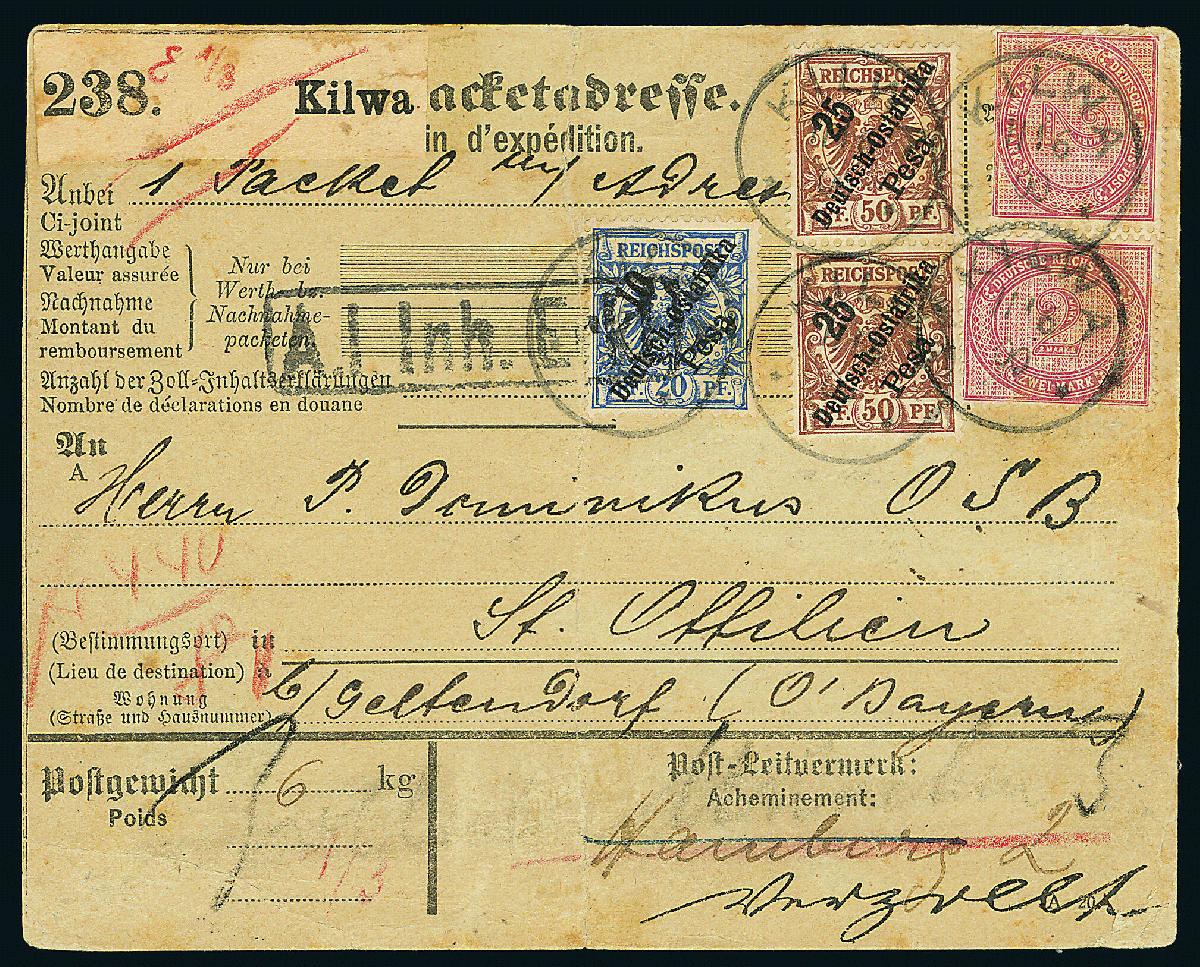 238. Kilwa acketadresse.
in d'expédition.
Anbei 1 Packet Adres
Ci-joint
Werthangabe
Valeur assurée
Nachnahme
Montant du
remboursement
Nur bei
Werth-
Nachnahme-
packeten.
A.I Inh. E
Anzahl der Zoll-Inhaltserklärungen
Nombre de déclarations en douane
REICHSPOST
10
Deutsch-Ostafrika
Pesa
20 PF.
REICHSPOST
25
Deutsch-Ostafrika
Pesa
PF. 50 PF.
REICHSPOST
25
Deutsch-Ostafrika
Pesa
PF. 50 PF.
2
DEUTSCHE REICHS
2
MARK
ZWEI MARK
KILWA
KILWA
An
A
Herrn P. Dominikus O S B
4 40
St. Ottilien
(Bestimmungsort) in
(Lieu de destination) à
Wohnung
(Straße und Hausnummer)
b/ Geltendorf (O'Bayern)
Postgewicht 6 kg
Poids
Post-Leitvermerk:
Acheminement:
Hamburg 2
Verzollt